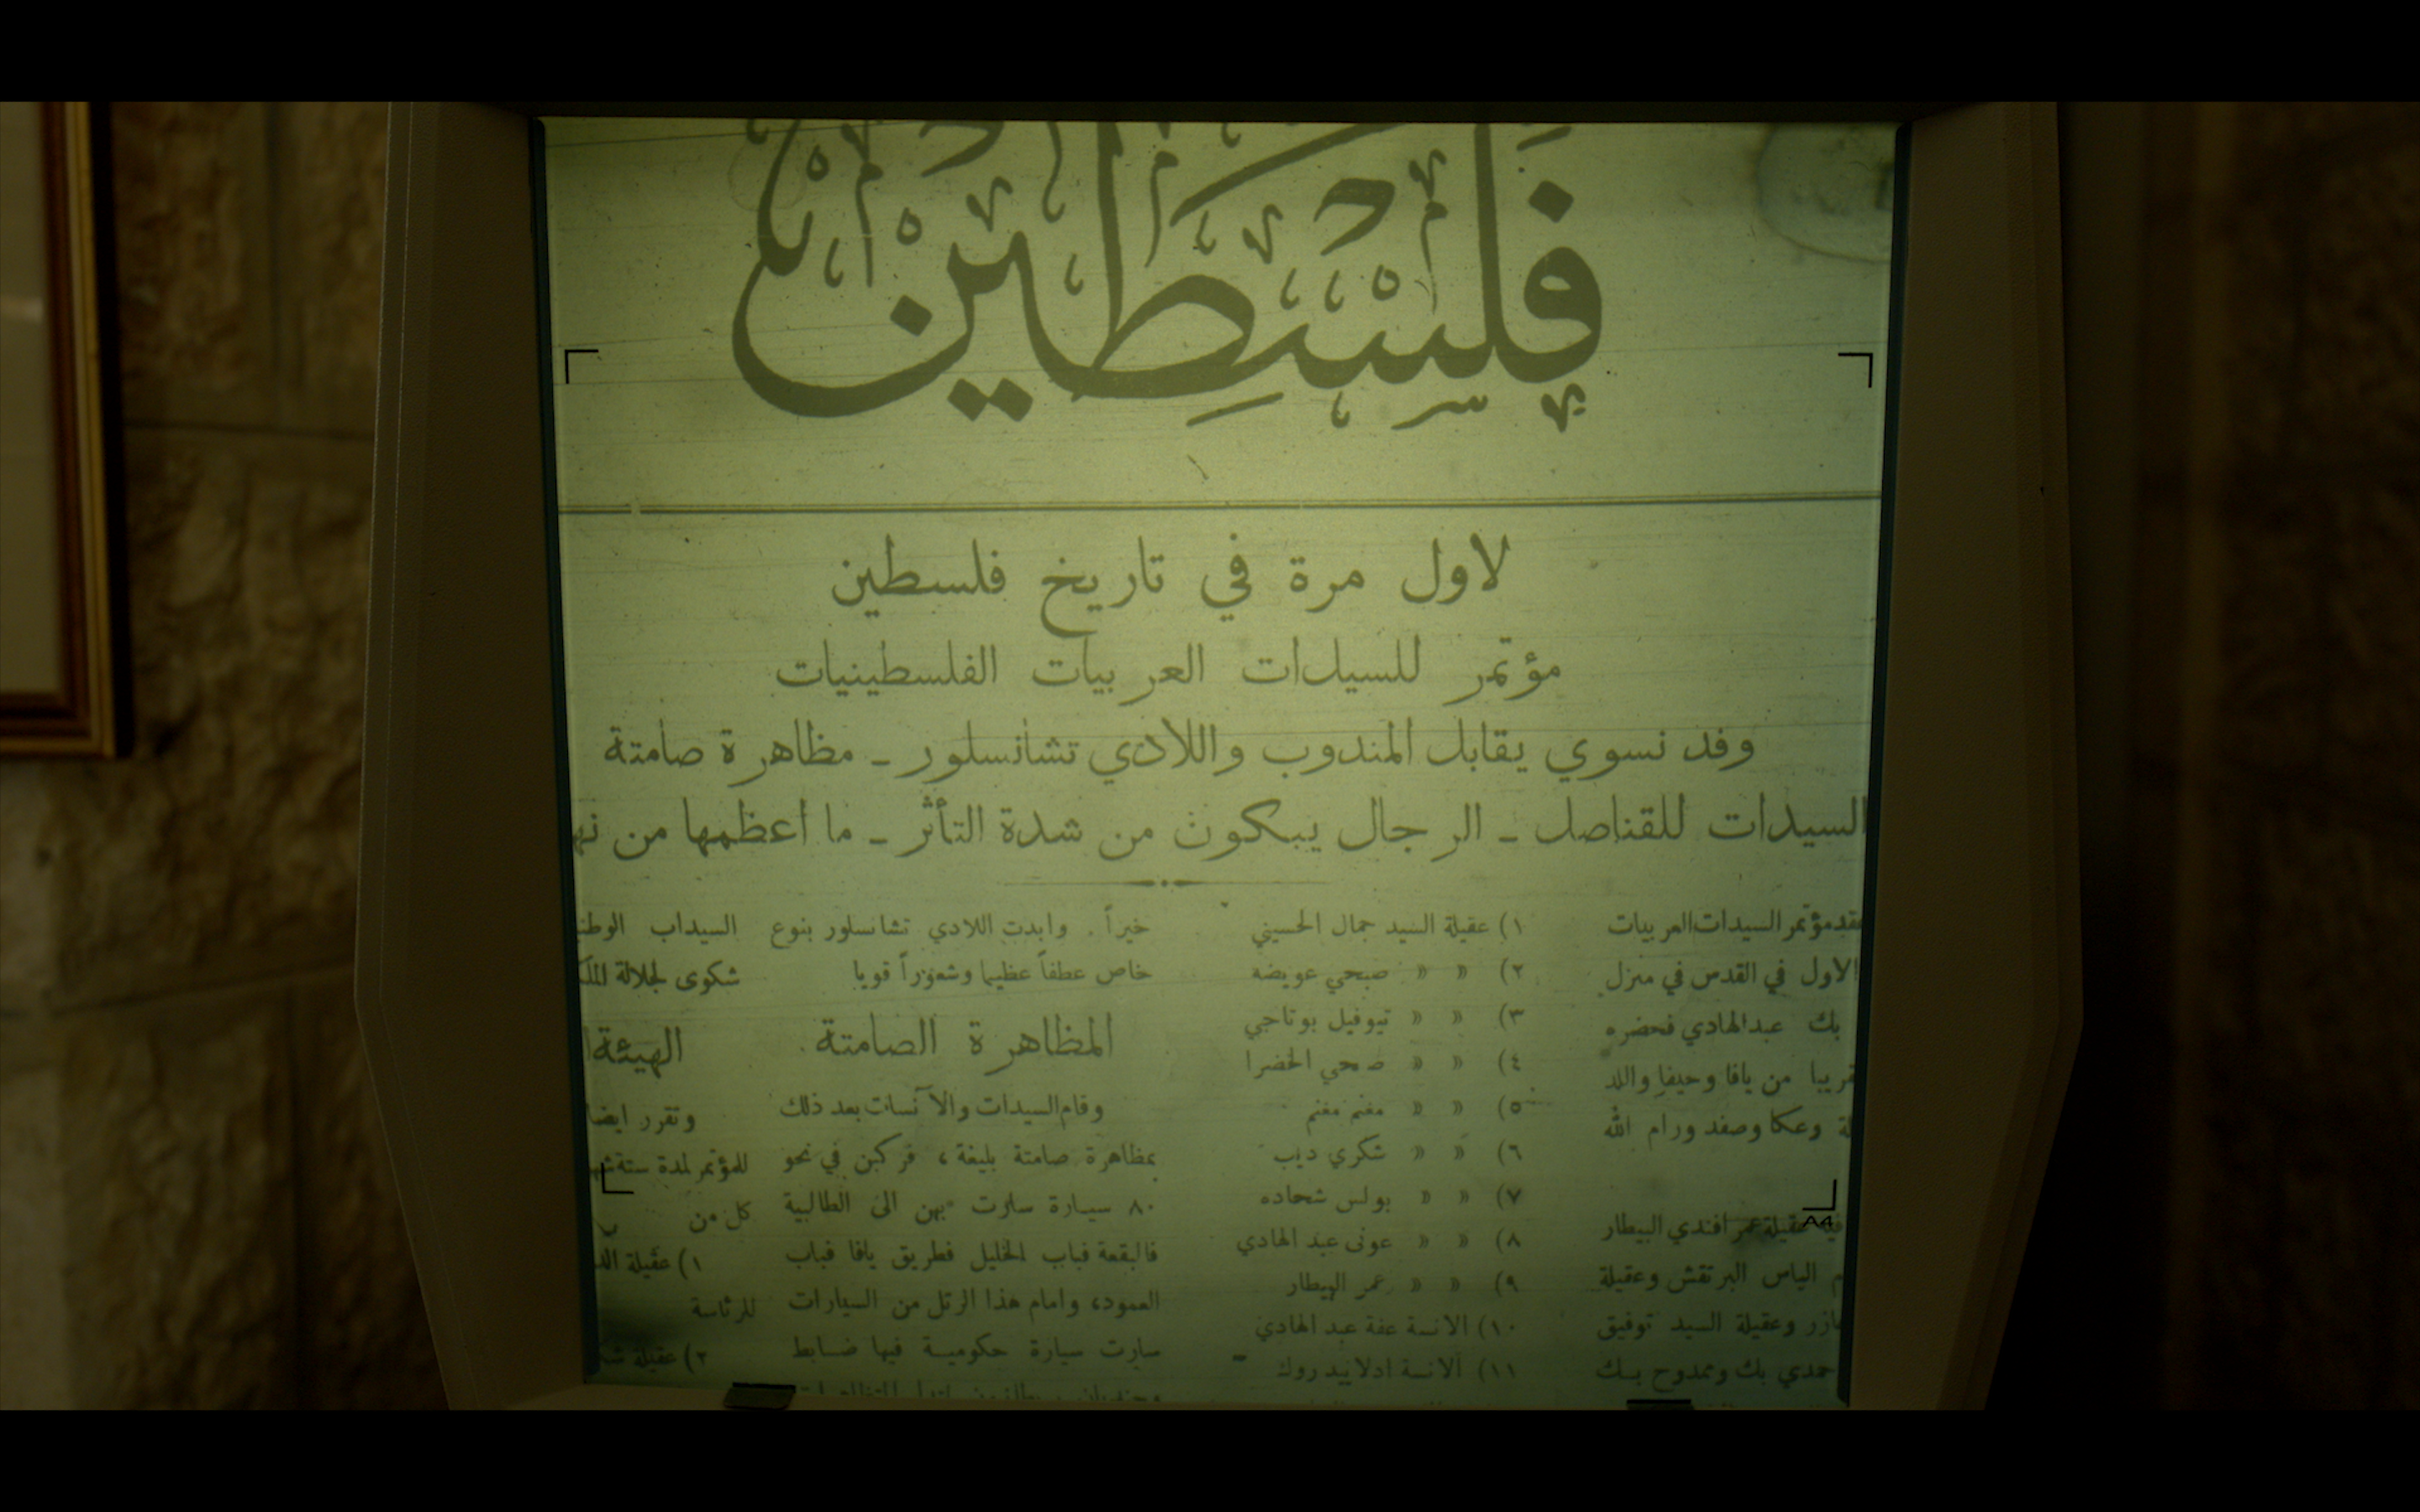 فَلِسِطِين
لاول مرة في تاريخ فلسطين
مؤتمر للسيدات العربيات الفلسطينيات
وفد نسوي يقابل المندوب واللادي تشانسلور ـ مظاهرة صامتة
السيدات للقناصل ـ الرجال يبكون من شدة التأثر ـ ما أعظمها من
مؤتمر السيدات العربيات
الاول في القدس في منزل
بك عبد الهادي فحضره
من يافا وحيفا واللد
وعكا وصفد ورام الله
عقيلة عمر افندي البيطار
الياس البرتقش وعقيلة
وعقيلة السيد توفيق
حمدي بك وممدوح بك
١) عقيلة السيد جمال الحسيني
٢) » » صبحي عويضه
٣) » » تيوفيل بوتاجي
٤) » » صبحي الخضرا
٥) » » مغنم مغنم
٦) » » شكري ديب
٧) » » بولس شحاده
٨) » » عوني عبد الهادي
٩) » » عمر البيطار
١٠) الانسة عفة عبد الهادي
١١) الانسة ادلاييد روك
خيراً . وابدت اللادي تشانسلور بنوع
خاص عطفاً عظيما وشعوراً قويا
المظاهرة الصامتة
وقام السيدات والآنسات بعد ذلك
بمظاهرة صامتة بليغة ، فركبن في نحو
٨٠ سيارة سارت بهن الى الطالبية
فالبقعة فباب الخليل فطريق يافا فباب
العمود، وامام هذا الرتل من السيارات
سارت سيارة حكومية فيها ضابط
السيداب
شكوى لجلالة
الهيئة
وتقرر ايضا
للمؤتمر لمدة ستة
كل من
١) عقيلة
للرئاسة
٢) عقيلة
A4